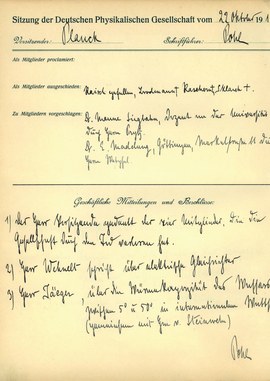 Sitzung der Deutschen Physikalischen Gesellschaft vom 29. Oktober 191
Vorsitzender Planck Schriftführer Pohl
Als Mitglieder proclamiert:
Als Mitglieder ausgeschieden:
Zu Mitgliedern vorgeschlagen:
Dr. Manne Siegbahn, Dozent an der Universität
Dr. E. Madelung, Göttingen,
Herrn
Geschäftliche Mitteilungen und Beschlüsse:
1) Der Herr Vorsitzende gedenkt der vier Mitglieder, die die
Gesellschaft durch den Tod verloren hat.
2) Herr Wehnelt spricht über elektrische Gleichrichter
3) Herr Jaeger, über die Wärmekapazität des Wassers
zwischen 5° u 50° in internationalen
(gemeinsam mit Hrn v. Steinwehr)
Pohl